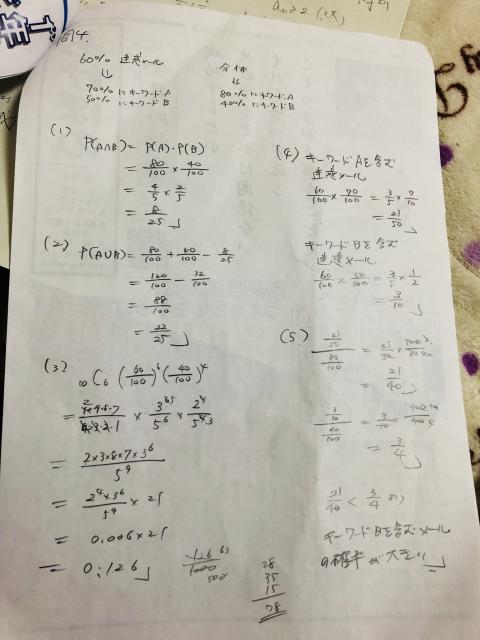 問4.
60% 迷惑メール
↓
70% にキーワード A
50% にキーワード B
全体
↓
80% にキーワード A
40% にキーワード B
(1)
P(A∩B) = P(A)・P(B)
= 80/100 × 40/100
= 4/5 × 2/5
= 8/25
(2)
P(A∪B) = 80/100 + 40/100 - 8/25
= 120/100 - 32/100
= 88/100
= 22/25
(3)
10C6 (60/100)^6 (40/100)^4
× 2^4
= 2×3×8×7×3^6 / 5^9
= 2^4×3^6 / 5^9 × 21
= 0.006 × 21
= 0.126
126/1000
63
500
28
35
15
78
(4) キーワードAを含む
迷惑メール
60/100 × 70/100 = 3/5 × 7/10
= 21/50
キーワードBを含む
迷惑メール
60/100 × 50/100 = 3/5 × 1/2
= 3/10
(5)
21/50 / 80/100 = 21/50 ×
= 21/40
3/10 / 40/100 = 3/10 ×
= 3/4
21/40 < 3/4 より
キーワードBを含むメール
の確率が大きい